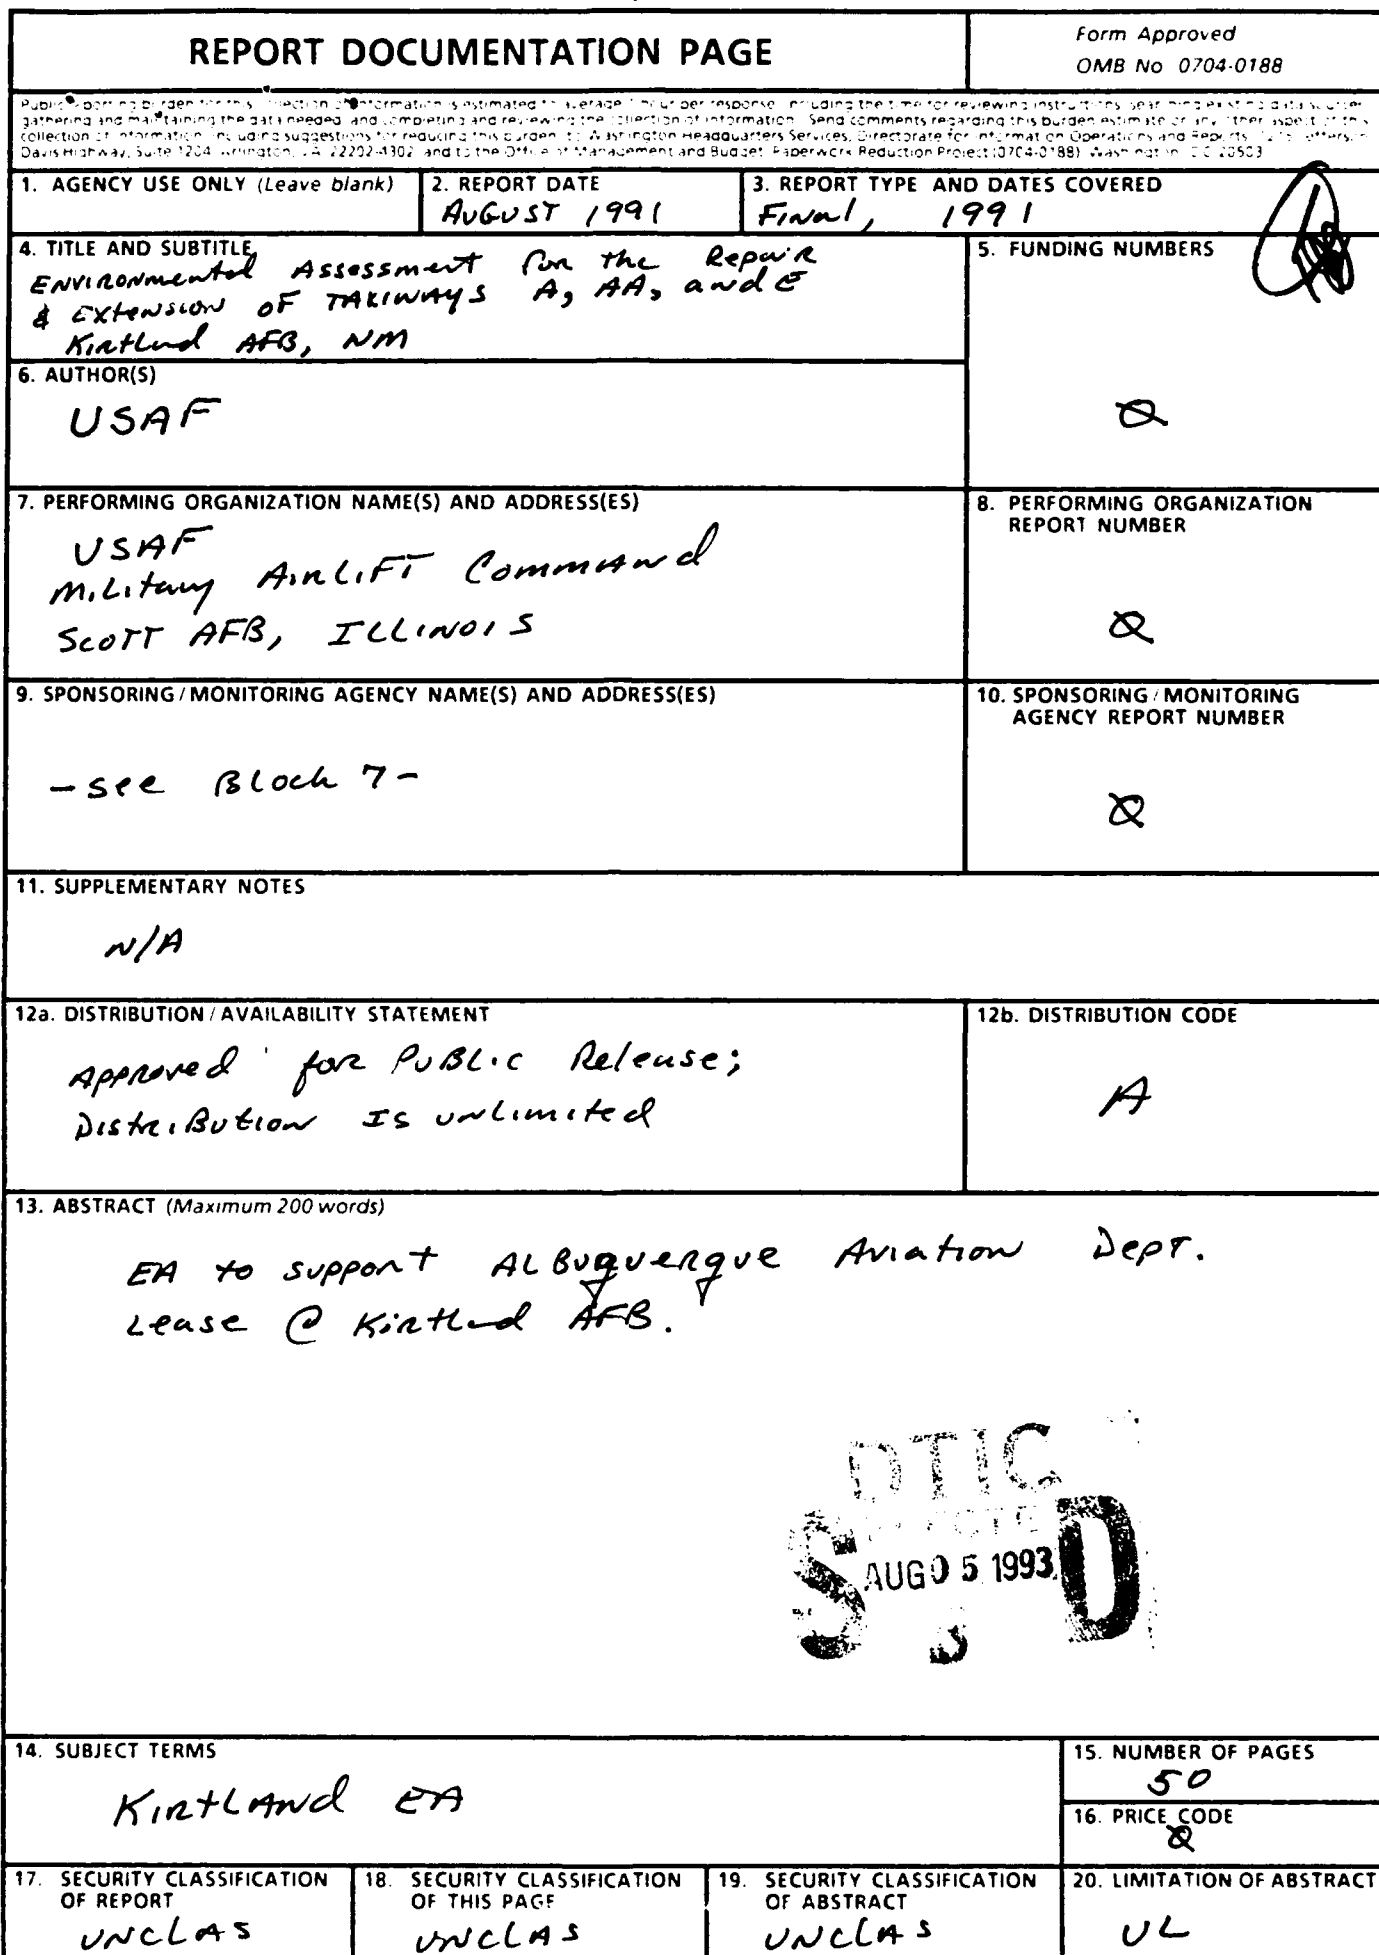 REPORT DOCUMENTATION PAGE
Form Approved
OMB No 0704-0188
gathering and maintaining the data needed, and completing and reviewing the collection of information. Send comments regarding this burden estimate or any other aspect of this
collection of information, including suggestions for reducing this burden, to Washington Headquarters Services, Directorate for Information Operations and Reports,
Davis Highway, Suite 1204, Arlington, VA 22202-4302, and to the Office of Management and Budget, Paperwork Reduction Project (0704-0188), Washington, DC 20503
1. AGENCY USE ONLY (Leave blank)
2. REPORT DATE
AUGUST 1991
3. REPORT TYPE AND DATES COVERED
Final, 1991
4. TITLE AND SUBTITLE
Environmental Assessment for the Repair
& Extension of TAXIWAYS A, AA, and E
Kirtland AFB, NM
5. FUNDING NUMBERS
6. AUTHOR(S)
USAF
7. PERFORMING ORGANIZATION NAME(S) AND ADDRESS(ES)
USAF
Military Airlift Command
Scott AFB, ILLINOIS
8. PERFORMING ORGANIZATION
REPORT NUMBER
9. SPONSORING/MONITORING AGENCY NAME(S) AND ADDRESS(ES)
-see Block 7-
10. SPONSORING/MONITORING
AGENCY REPORT NUMBER
11. SUPPLEMENTARY NOTES
N/A
12a. DISTRIBUTION/AVAILABILITY STATEMENT
Approved for Public Release;
Distribution Is unlimited
12b. DISTRIBUTION CODE
A
13. ABSTRACT (Maximum 200 words)
EA to support Albuquerque Aviation Dept.
Lease @ Kirtland AFB.
DTIC
S ELECTE D
AUG 05 1993
14. SUBJECT TERMS
Kirtland EA
15. NUMBER OF PAGES
50
16. PRICE CODE
17. SECURITY CLASSIFICATION
OF REPORT
UNCLAS
18. SECURITY CLASSIFICATION
OF THIS PAGE
UNCLAS
19. SECURITY CLASSIFICATION
OF ABSTRACT
UNCLAS
20. LIMITATION OF ABSTRACT
UL